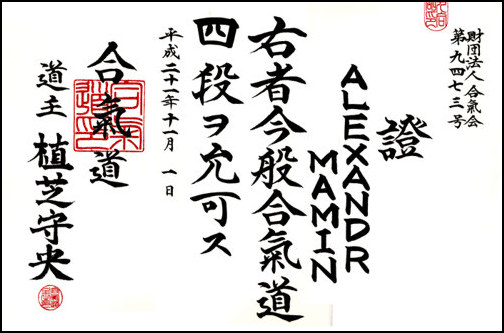 財団法人 合氣会
第九四七三号
證
ALEXANDR
MAMIN
右者今般合氣道
四段ヲ允可ス
平成二十一年十一月 一日
合氣道
道主 植芝守央